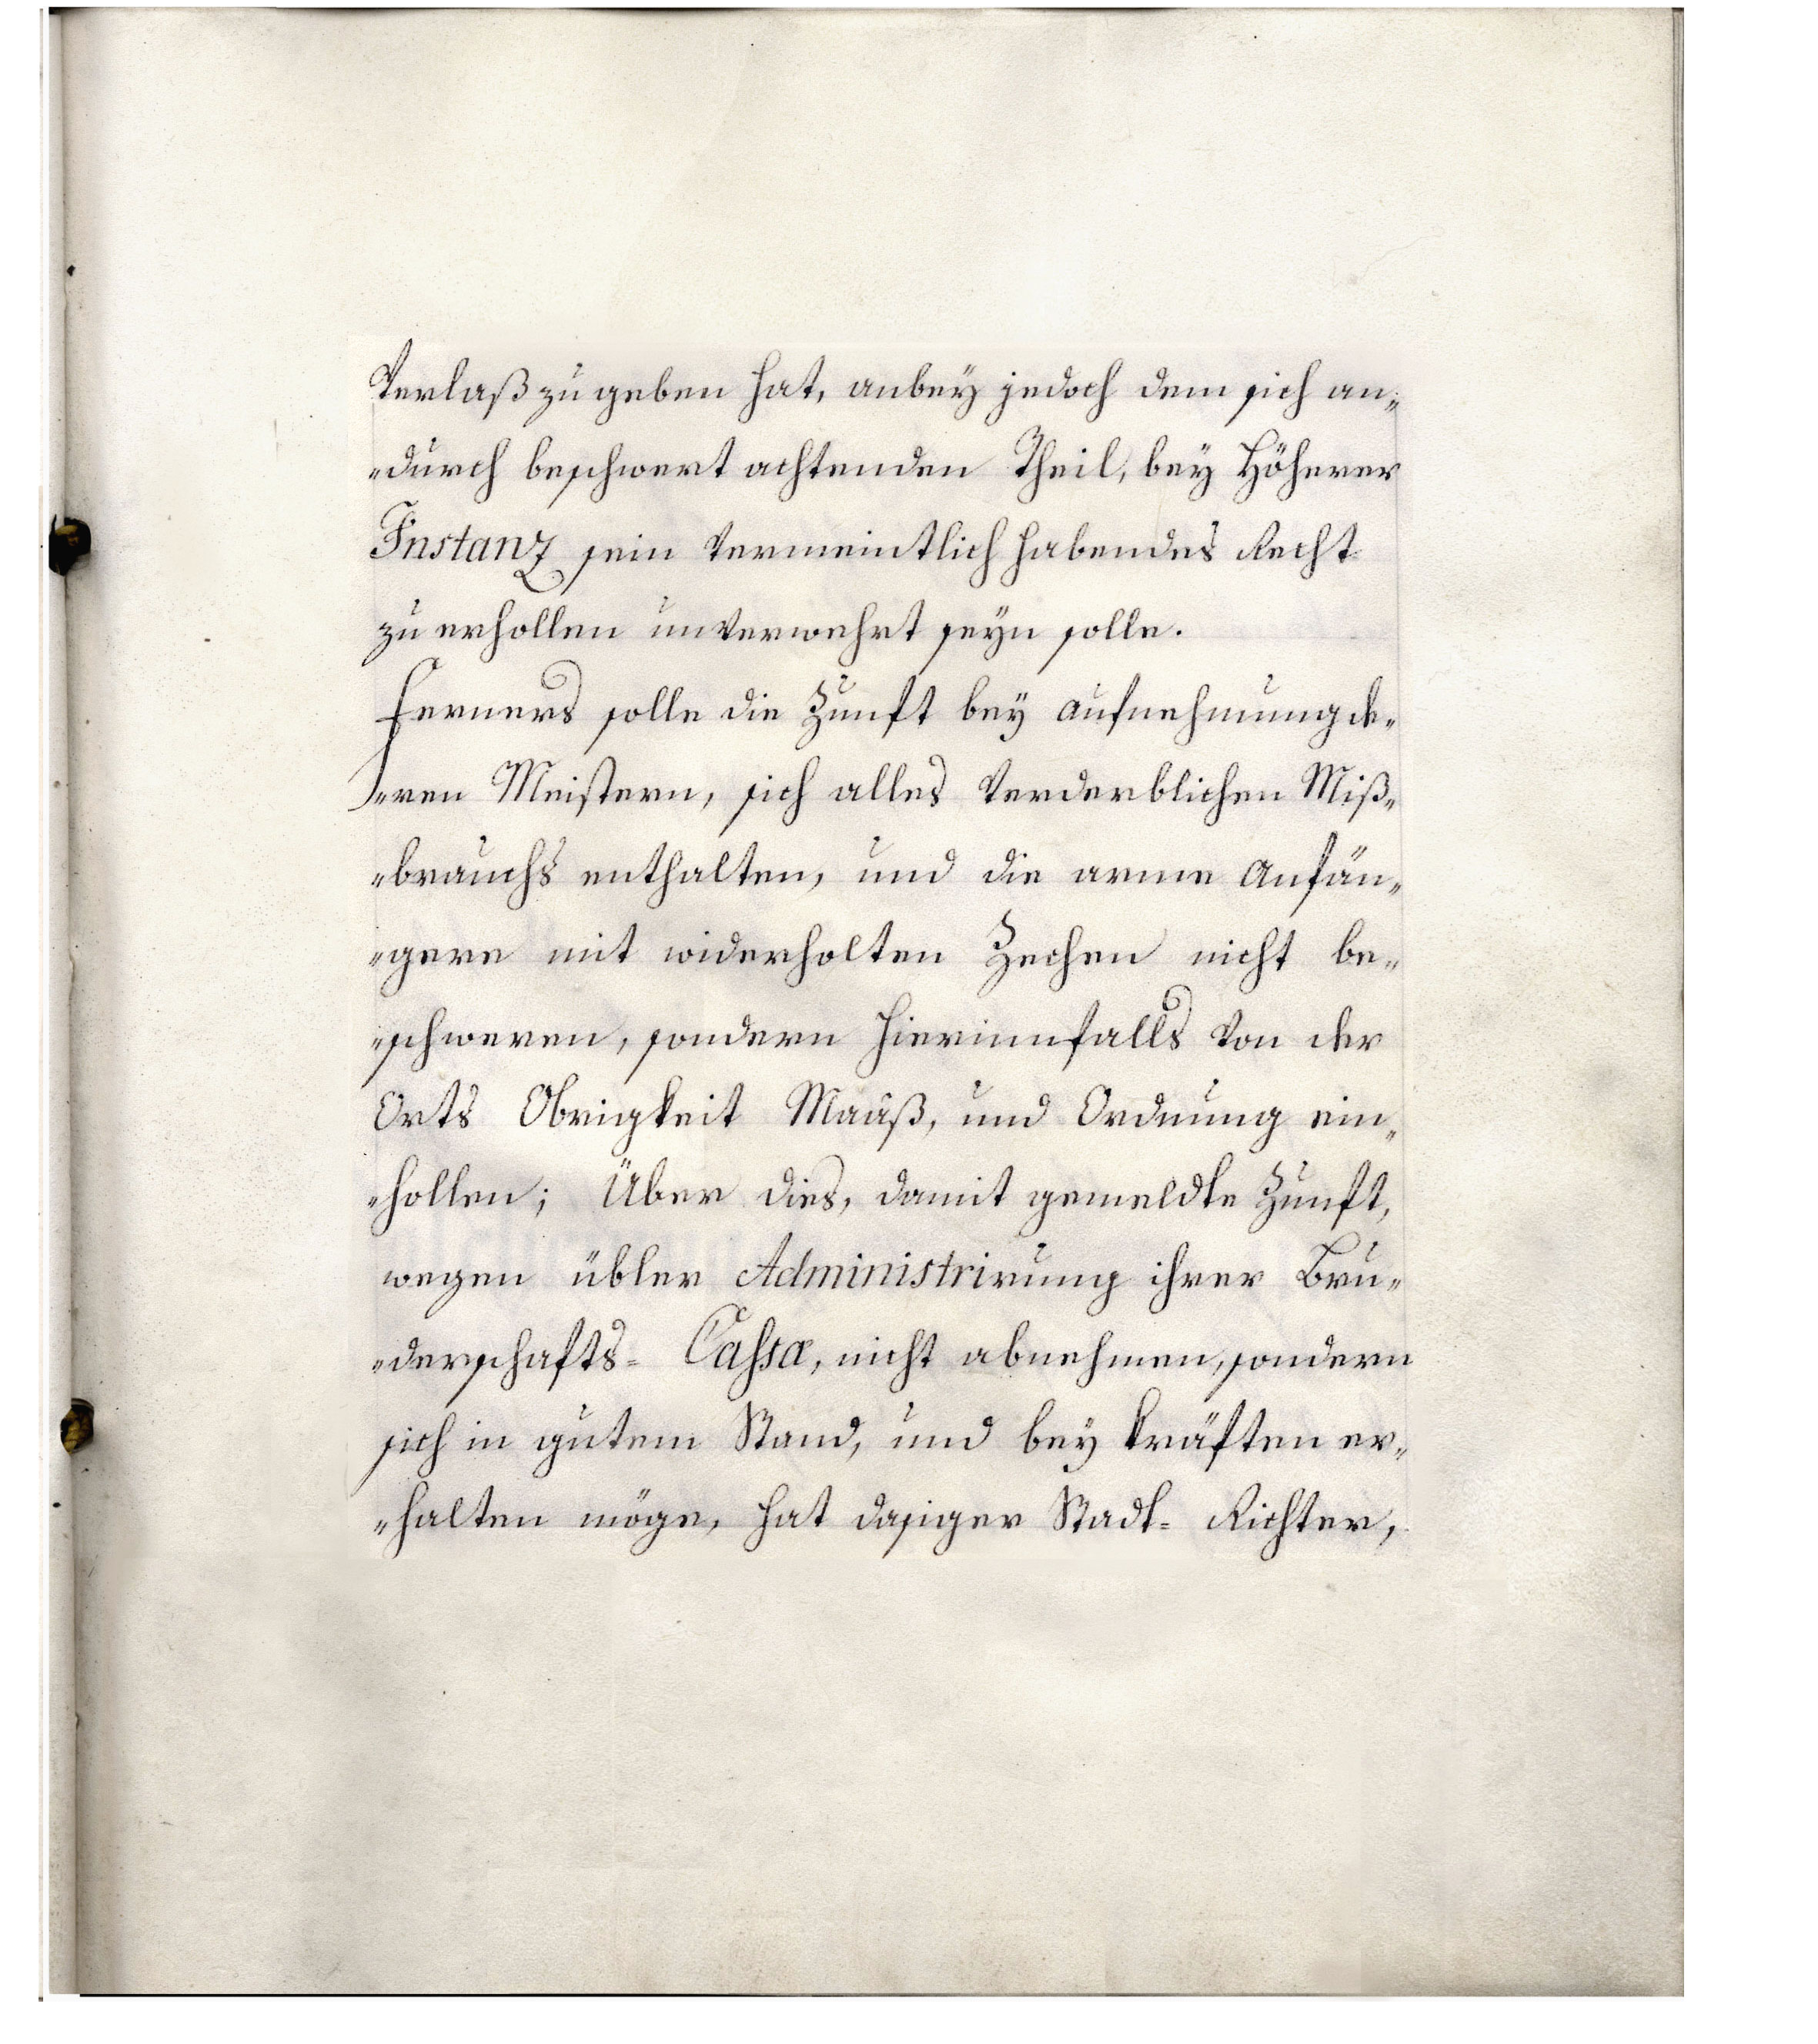 Verlaß zu geben hat, anbey jedoch dem sich an„
„durch beschwert achtenden Theil, bey Höherer
Instanz sein Vermeintlich habendes Recht
zu erhollen unVerwehrt seyn solle.
Ferners solle die Zunft bey aufnehmung de„
„ren Meistern, sich alles Verderblichen Miß„
„brauchs enthalten, und die arme Anfän„
„gere mit widerholten Zechen nicht be„
„schweren, sondern hierinnfalls Von der
Orts Obrigkeit Maaß, und Ordnung ein„
„hollen; Über dies, damit gemeldte Zunft,
wegen übler Administrirung ihrer Bru„
„derschafts= Cassæ, nicht abnehmen, sondern
sich in gutem Stand, und bey kräften er„
„halten möge, hat dasiger Stadt= Richter,